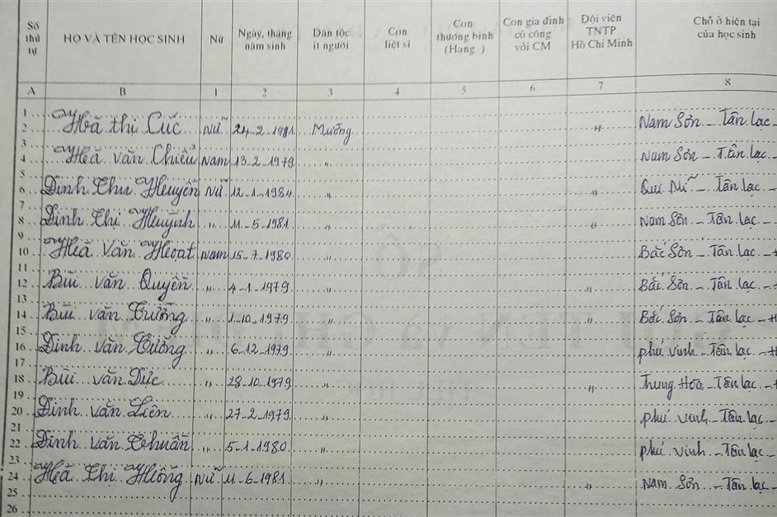 Số thứ tự HỌ VÀ TÊN HỌC SINH Nữ Ngày, tháng năm sinh Dân tộc ít người Con liệt sĩ Con thương binh (Hạng ) Con gia đình có công với CM Đội viên TNTP Hồ Chí Minh Chỗ ở hiện tại của học sinh
A B 1 2 3 4 5 6 7 8
1
2 Hà thị Cúc Nữ 24-2-1981 Mường " Nam Sơn - Tân lạc -
3
4 Hà văn Chiểu Nam 13.2-1979 " Nam Sơn - Tân lạc -
5
6 Đinh Thu Huyền Nữ 12-1-1984 " " Qui Mĩ - Tân lạc -
7
8 Đinh Thị Huỳnh " 11-5-1981 " " Nam Sơn - Tân lạc -
9
10 Hà Văn Hoạt Nam 15-7-1980 " Bắc Sơn - Tân lạc -
11
12 Bùi văn Quyền " 4-1-1979 " " Bắc Sơn - Tân lạc -
13
14 Bùi văn Trường " 1-10-1979 " " Bắc Sơn - Tân lạc -
15
16 Đinh văn Cường " 6-12-1979 " phú vinh - Tân lạc -
17
18 Bùi văn Dức " 28-10-1979 " " Trung Hoà - Tân lạc -
19
20 Đinh văn Liên " 27-2-1979 " phú vinh - Tân lạc -
21
22 Đinh văn Chuẩn " 5-1-1980 " phú vinh - Tân lạc -
23
24 Hà Thị Hồng Nữ 11-6-1981 " " Nam Sơn - Tân lạc -
25
26